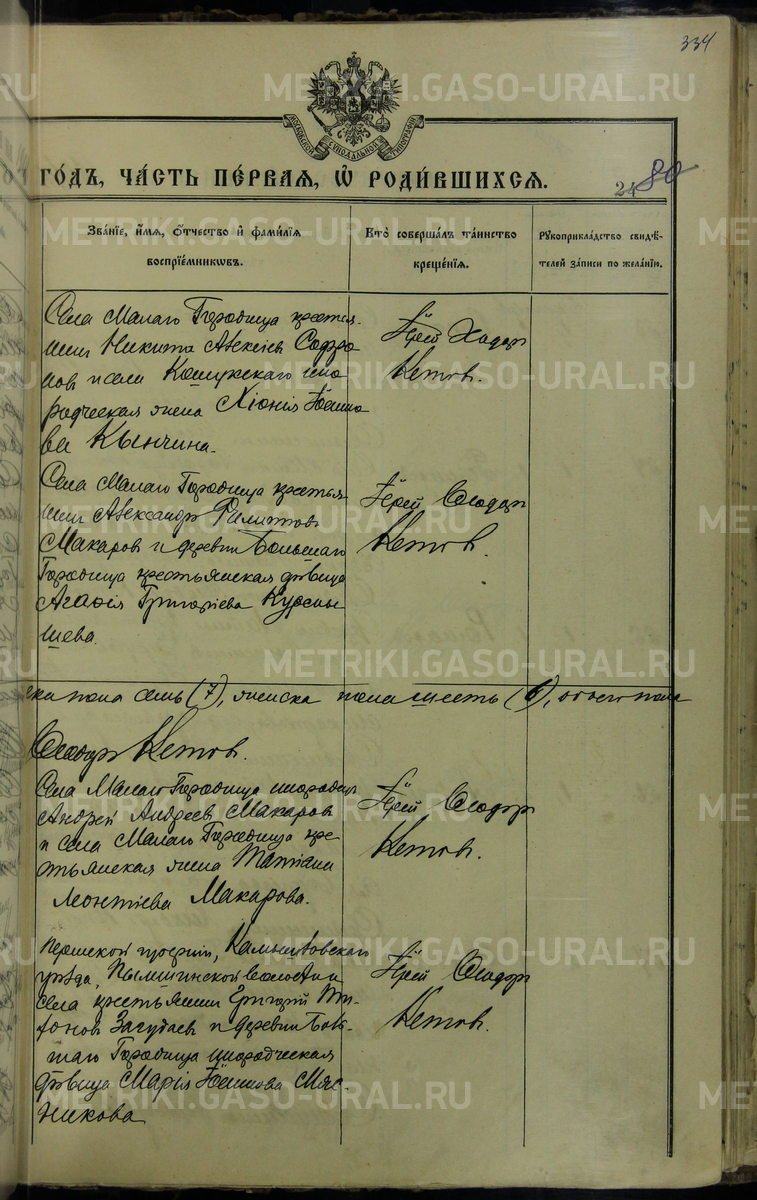 334
МОСКОВСКОЙ СѴНОДАЛЬНОЙ ТИПОГРАФІИ
ГО́ДЪ, ЧА́СТЬ ПЕ́РВАЯ, Ѡ҆ РОДИ́ВШИХСЯ.
24 80
Зва́нїе, и҆́мя, ѻ҆́тчество и҆ фами́лїя воспрїе́мниковъ.
Кто̀ соверша́лъ та́инство креще́нїя.
Рꙋкоприкла́дство свидѣ́телей за́писи по жела́нїю.
Села Малаго Городища крестья-
нин Никита Алексіев Софро
нов и села
родческая жена Хіонія Іоанно
ва Кынчина.
Іерей Ѳеодор
Кетов.
Села Малаго Городища крестья
нин Александр Филиппов
Макаров и деревни Большаго
Городища крестьянская дѣвица
Агафія Григоріева Курсмы
шева.
Іерей Ѳеодор
Кетов.
ска пола семь (7), женска пола шесть (6), обоего пола
Ѳеодор Кетов.
Села Малаго Городища инородец
Андрей Андреев Макаров
и села Малаго Городища кре
стьянская жена Татіана
Леонтіева Макарова.
Іерей Ѳеодор
Кетов.
Пермской губерніи, Камышловскаго
уѣзда, Пышминской волости и
села крестьянин Григорій
Загудаев и деревни Боль
шаго Городища инородческая
дѣвица Марія Іоаннова Мяс
никова
Іерей Ѳеодор
Кетов.
METRIKI.GASO-URAL.RU